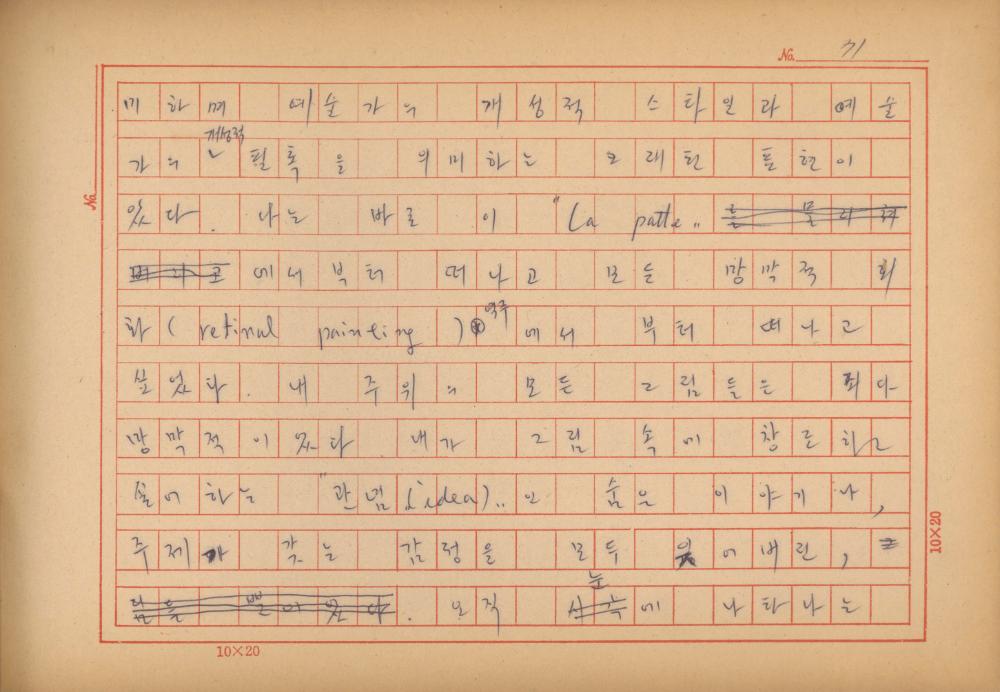 No. 71
미하며 예술가의 개성적 스타일과 예술
가의 개성적 필촉을 의미하는 오래된 표현이
있다. 나는 바로 이 "La patte"
에서부터 떠나고 모든 망막적 회
화(retinal painting)역주에서부터 떠나고
싶었다. 내 주위의 모든 그림들은 죄다
망막적이었다. 내가 그림 속에 창조하고
싶어하는 "관념(idea)"은 숨은 이야기나,
주제가 갖는 감정을 모두 잃어버린,
오직 눈에 나타나는
No.
10×20
10×20